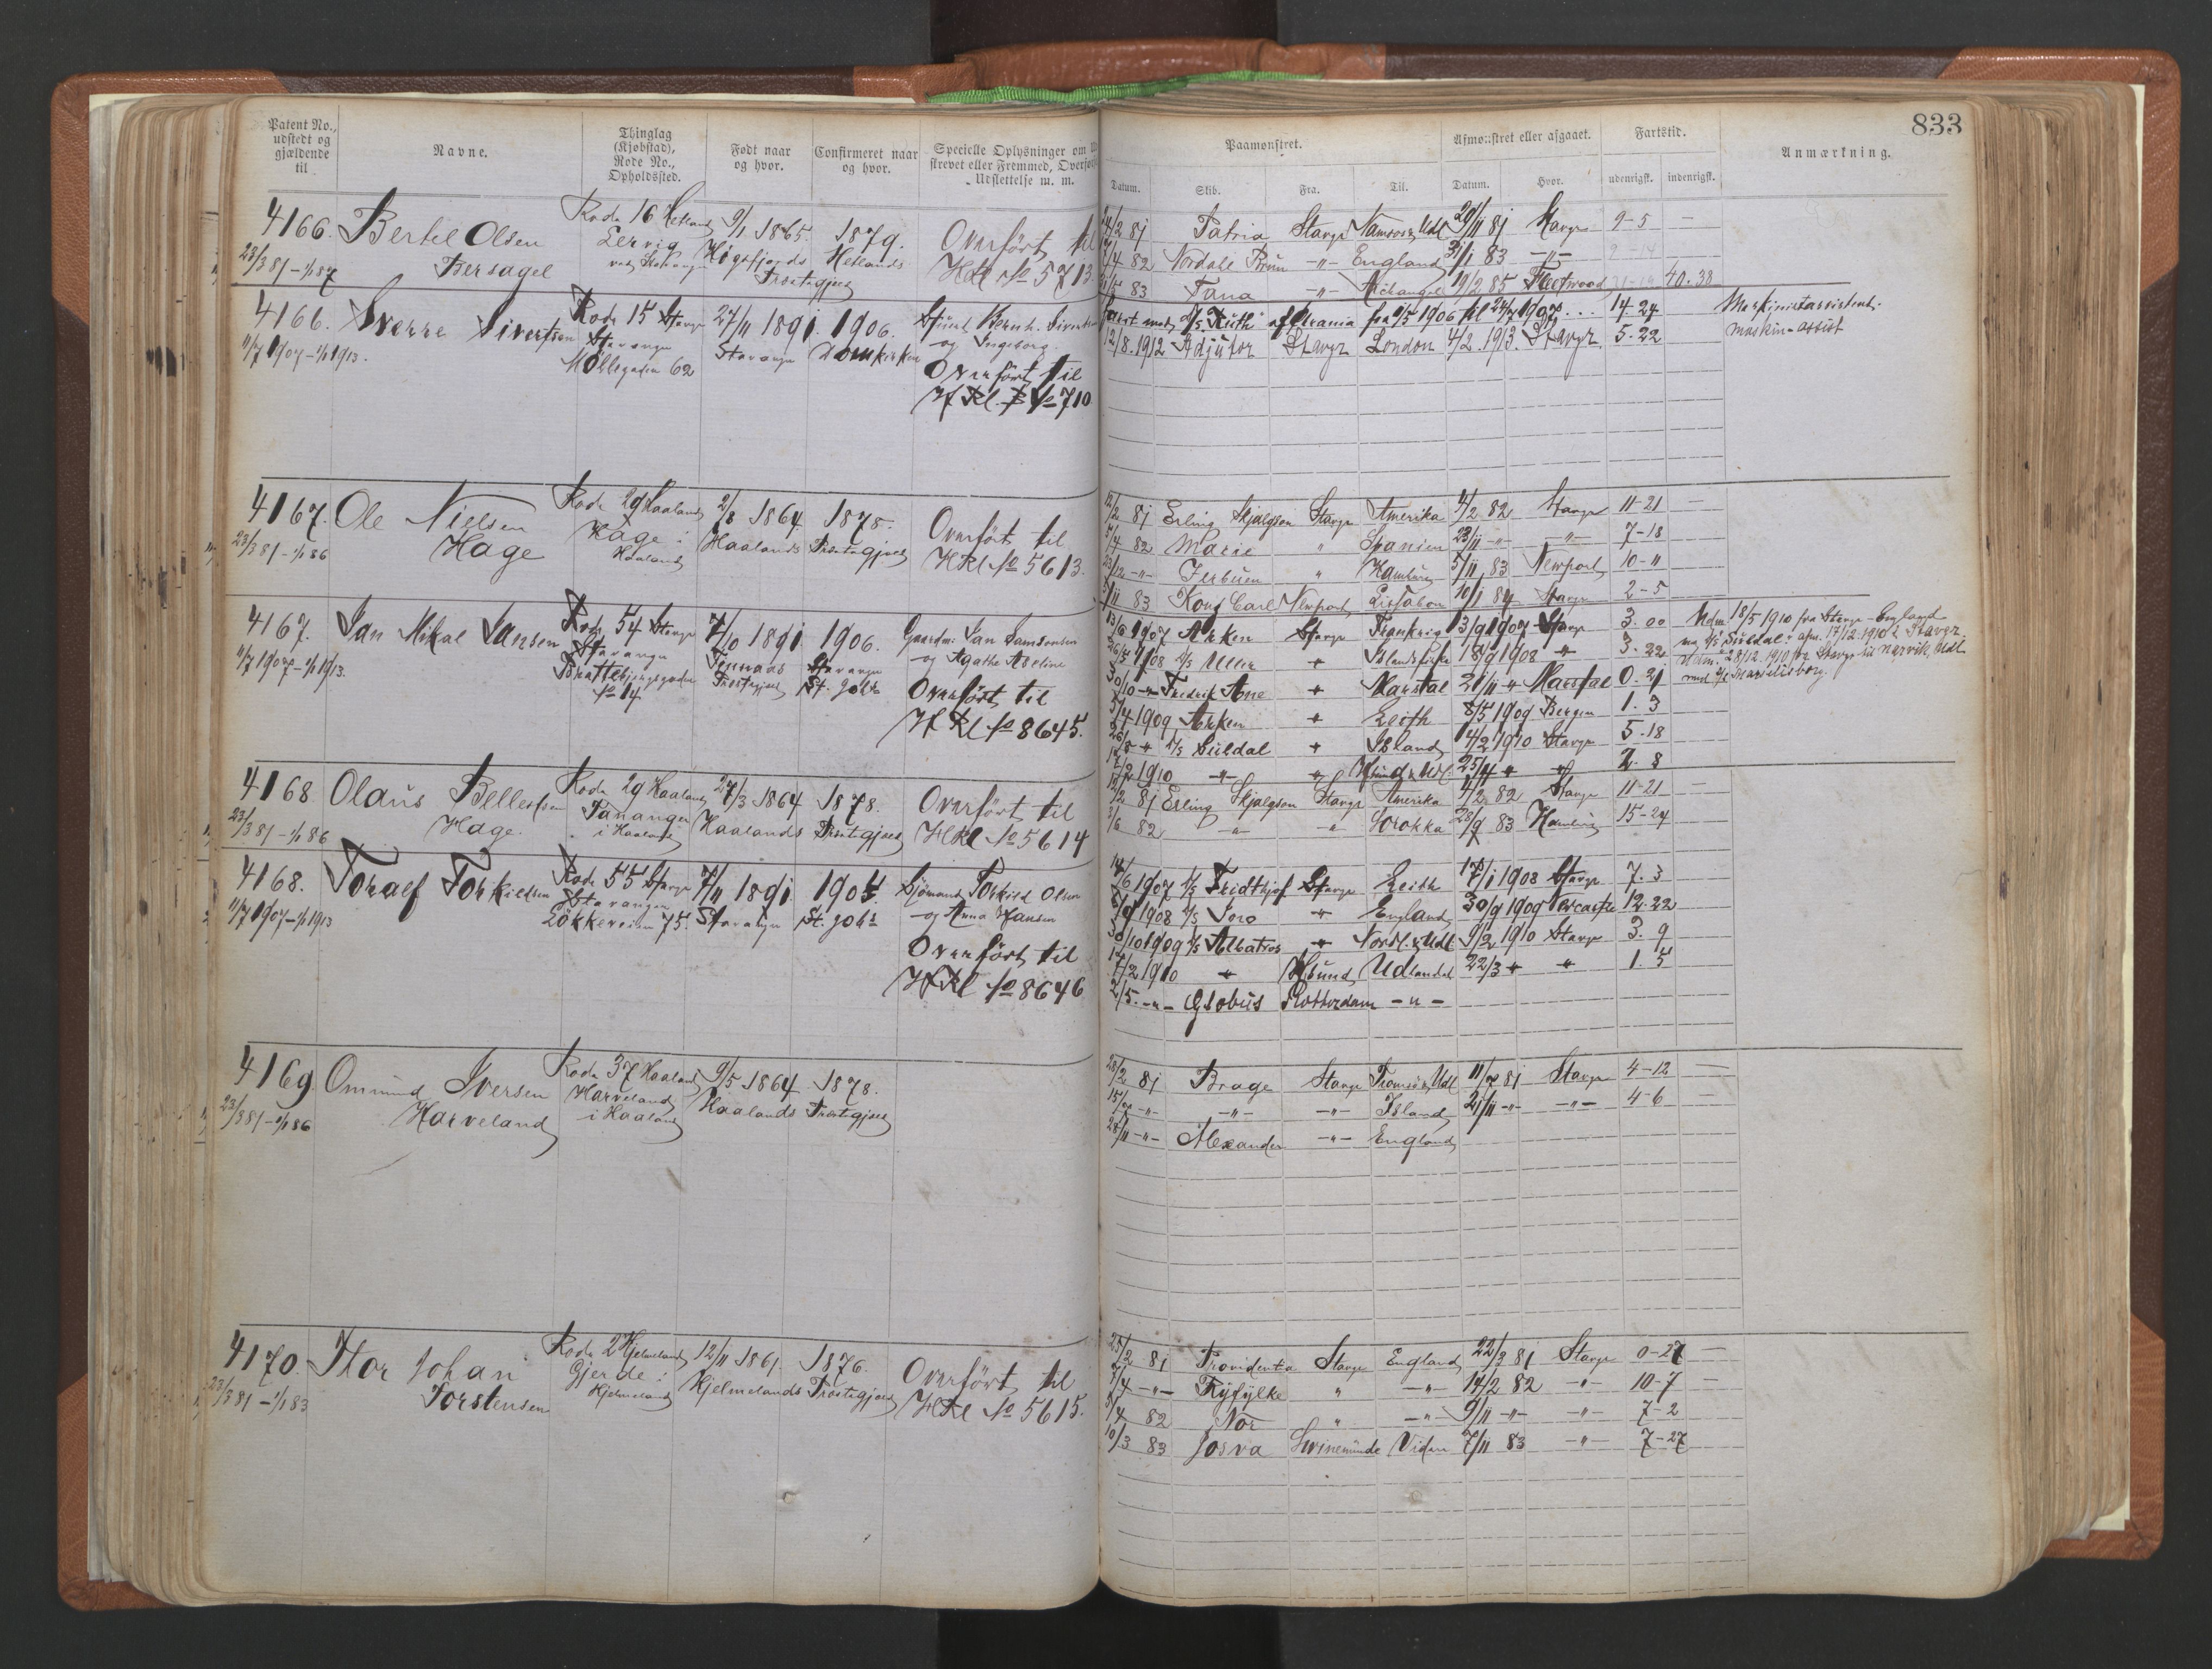 833
Patent No., udstedt og gjældende til
Navne.
Thinglag (Kjøbstad), Rode No., Opholdssted.
Født naar og hvor.
Confirmeret naar og hvor.
Specielle Oplysninger om
strevet eller Fremmed, Overfør
Udslettelse m. m.
Paamønstret.
Afmønstret eller afgaaet.
Fartstid.
Anmærkning.
Datum.
Skib.
Fra.
Til.
Datum.
Hvor.
udenrigsk.
indenrigsk.
4166. Bertel Olsen Rode 16 Hetland 9/1 1865. 1879. Overført til
23/3 81 - 1/1 87 Bersagel Lervig Høgsfjords Hetlands HRl No 5713.
Præstegjæld
2 81 Patria Stavgr Namsos & Udl 29/11 81 Stavgr 9-5 —
7/4 82 Nordahl Brun -"- England 31/1 83 -"-
83 Fana -"- Archangel 19/2 85 Fleetwood 40-38
4166. Sverre Sivertsen Rode 15 Stavgr 27/11 1891. 1906. Sjmd Bernh. Sivertsen
11/7 1907 - 1/1 1913. Stavanger Stavanger Domkirken og Ingeborg.
Møllegaden 62 Overført til
H Rl. No 710
Faret med D/S "Ruth" af Chrania fra 1/5 1906 til 24/7 1907... 14-24 Maskinistassistent.
12/8. 1912 Adjutor Stavgr London 4/2. 1913. Stavgr. 5-22 maskin-assist
4167. Ole Nielsen Rode 29 Haaland 2/8 1864 1878. Overført til
23/3 81 - 1/1 86 Hage Hage i Haaland Haalands Præstegjæld HRl No 5613.
12/2 81 Erling Skjalgson Stavgr Amerika 4/2 82 Stavgr 11-21 —
7/4 82 Marie " Spanien 23/11 -"- -"- 7-18
23/12 -"- Jerbuen " Hamburg 5/11 83 Newport 10-11
5/11 83 Kong Carl Newport Lissabon 10/1 84 Stavgr 2-5
4167. Jan Mikal Jansen Rode 54 Stavgr 7/10 1891. 1906. Gaardm. Jan Samsonsen
11/7 1907 - 1/1 1913. Stavanger Stavanger og Agathe Abeline
Brattebjergsgaden Præstegjæld St. Johs Overført til
No 14. H Rl No 8645.
13/6 1907 Arken Stavgr Frankrig 13/9 1907 Stavgr 3. 00 Udm. 18/5 1910 fra Stavgr - England
26/5 1908 D/S Ullir " Islandsfiske 18/9 1908 " 3. 22 m. D/S Suldal; afm. 17/12. 1910 i Stavgr
30/10 -"- Fredrik Ane " Marstal 21/11 " Marstal 0. 21 Udm. 28/12. 1910 fra Stavgr til Narvik, Udl.
5/4 1909 Arken " Leith 8/5 1909 Bergen 1. 3 med D/S Marselisborg.
26/8 " D/S Suldal " Island 14/2 1910 Stavgr 5. 18
17/2 1910 -"- " Hsund & Udl. 25/4 " " 2. 8
4168 Olaus Bellesen Rode 29 Haaland 27/3 1864 1878. Overført til
23/3 81 - 1/1 86 Hage. Tananger i Haaland Haalands Præstegjæld HRl No 5614
12/2 81 Erling Skjalgson Stavgr Amerika 4/2 82 Stavgr 11-21 —
3/6 82 -"- -"- Sorokka 28/9 83 Hamburg 15-24
4168. Toralf Torkildsen Rode 55 Stavgr 7/11 1891. 1905 Sjømand Torkild Olsen
11/7 1907 - 1/1 1913 Stavanger Stavanger St. Johs og Anna Hansen
Løkkeveien 75. Overført til
H Rl No 8646
14/6 1907 D/S Fridthjof Stavgr Leith 17/1 1908 Stavgr 7. 3
5/9 1908 D/S Jæro " England 30/9 1909 Newcastle 12. 22
30/10 1909 D/S Albatros " Nordl. & Udl 9/2 1910 Stavgr 3. 9
17/2 1910 " Hsund Udlandet 22/3 " " 1. 5
2/5. -"- Globus Rotterdam -"-
4169 Ommund Iversen Rode 37 Haaland 9/5 1864 1878.
23/3 81 - 1/1 86 Harveland Harveland i Haaland Haalands Præstegjæld
28/2 81 Brage Stavgr Tromsø & Udl 11/7 81 Stavgr 4-12 —
15/7 -"- -"- -"- Island 21/11 -"- -"- 4-6 —
28/11 -"- Alexander -"- England
4170. Thor Johan Rode 2 Hjelmeland 12/11 1861. 1876. Overført til
23/3 81 - 1/1 83 Torstensen Gjerde i Hjelmeland Hjelmelands Præstegjæld HRl No 5615.
25/2 81 Providentia Stavgr England 22/3 81 Stavgr 0-27 —
7/4 -"- Ryfylke " -"- 14/2 82 -"- 10-7 —
3/4 82 Nor " -"- 9/11 -"- -"- 7-2
10/3 83 Josva Swinemünde Viden 7/11 83 -"- 7-27